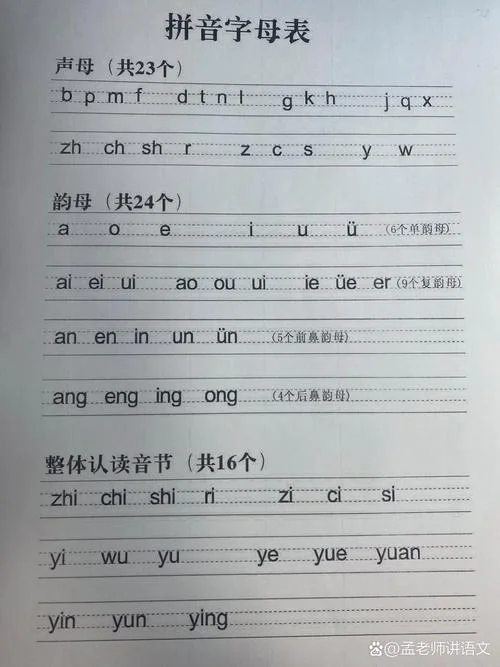 拼音字母表
声母（共23个）
b p m f d t n l g k h j q x
zh ch sh r z c s y w
韵母（共24个）
a o e i u ü （6个单韵母）
ai ei ui ao ou ui ie üe er （9个复韵母）
an en in un ün （5个前鼻韵母）
ang eng ing ong （4个后鼻韵母）
整体认读音节（共16个）
zhi chi shi ri zi ci si
yi wu yu ye yue yuan
yin yun ying
孟老师讲语文